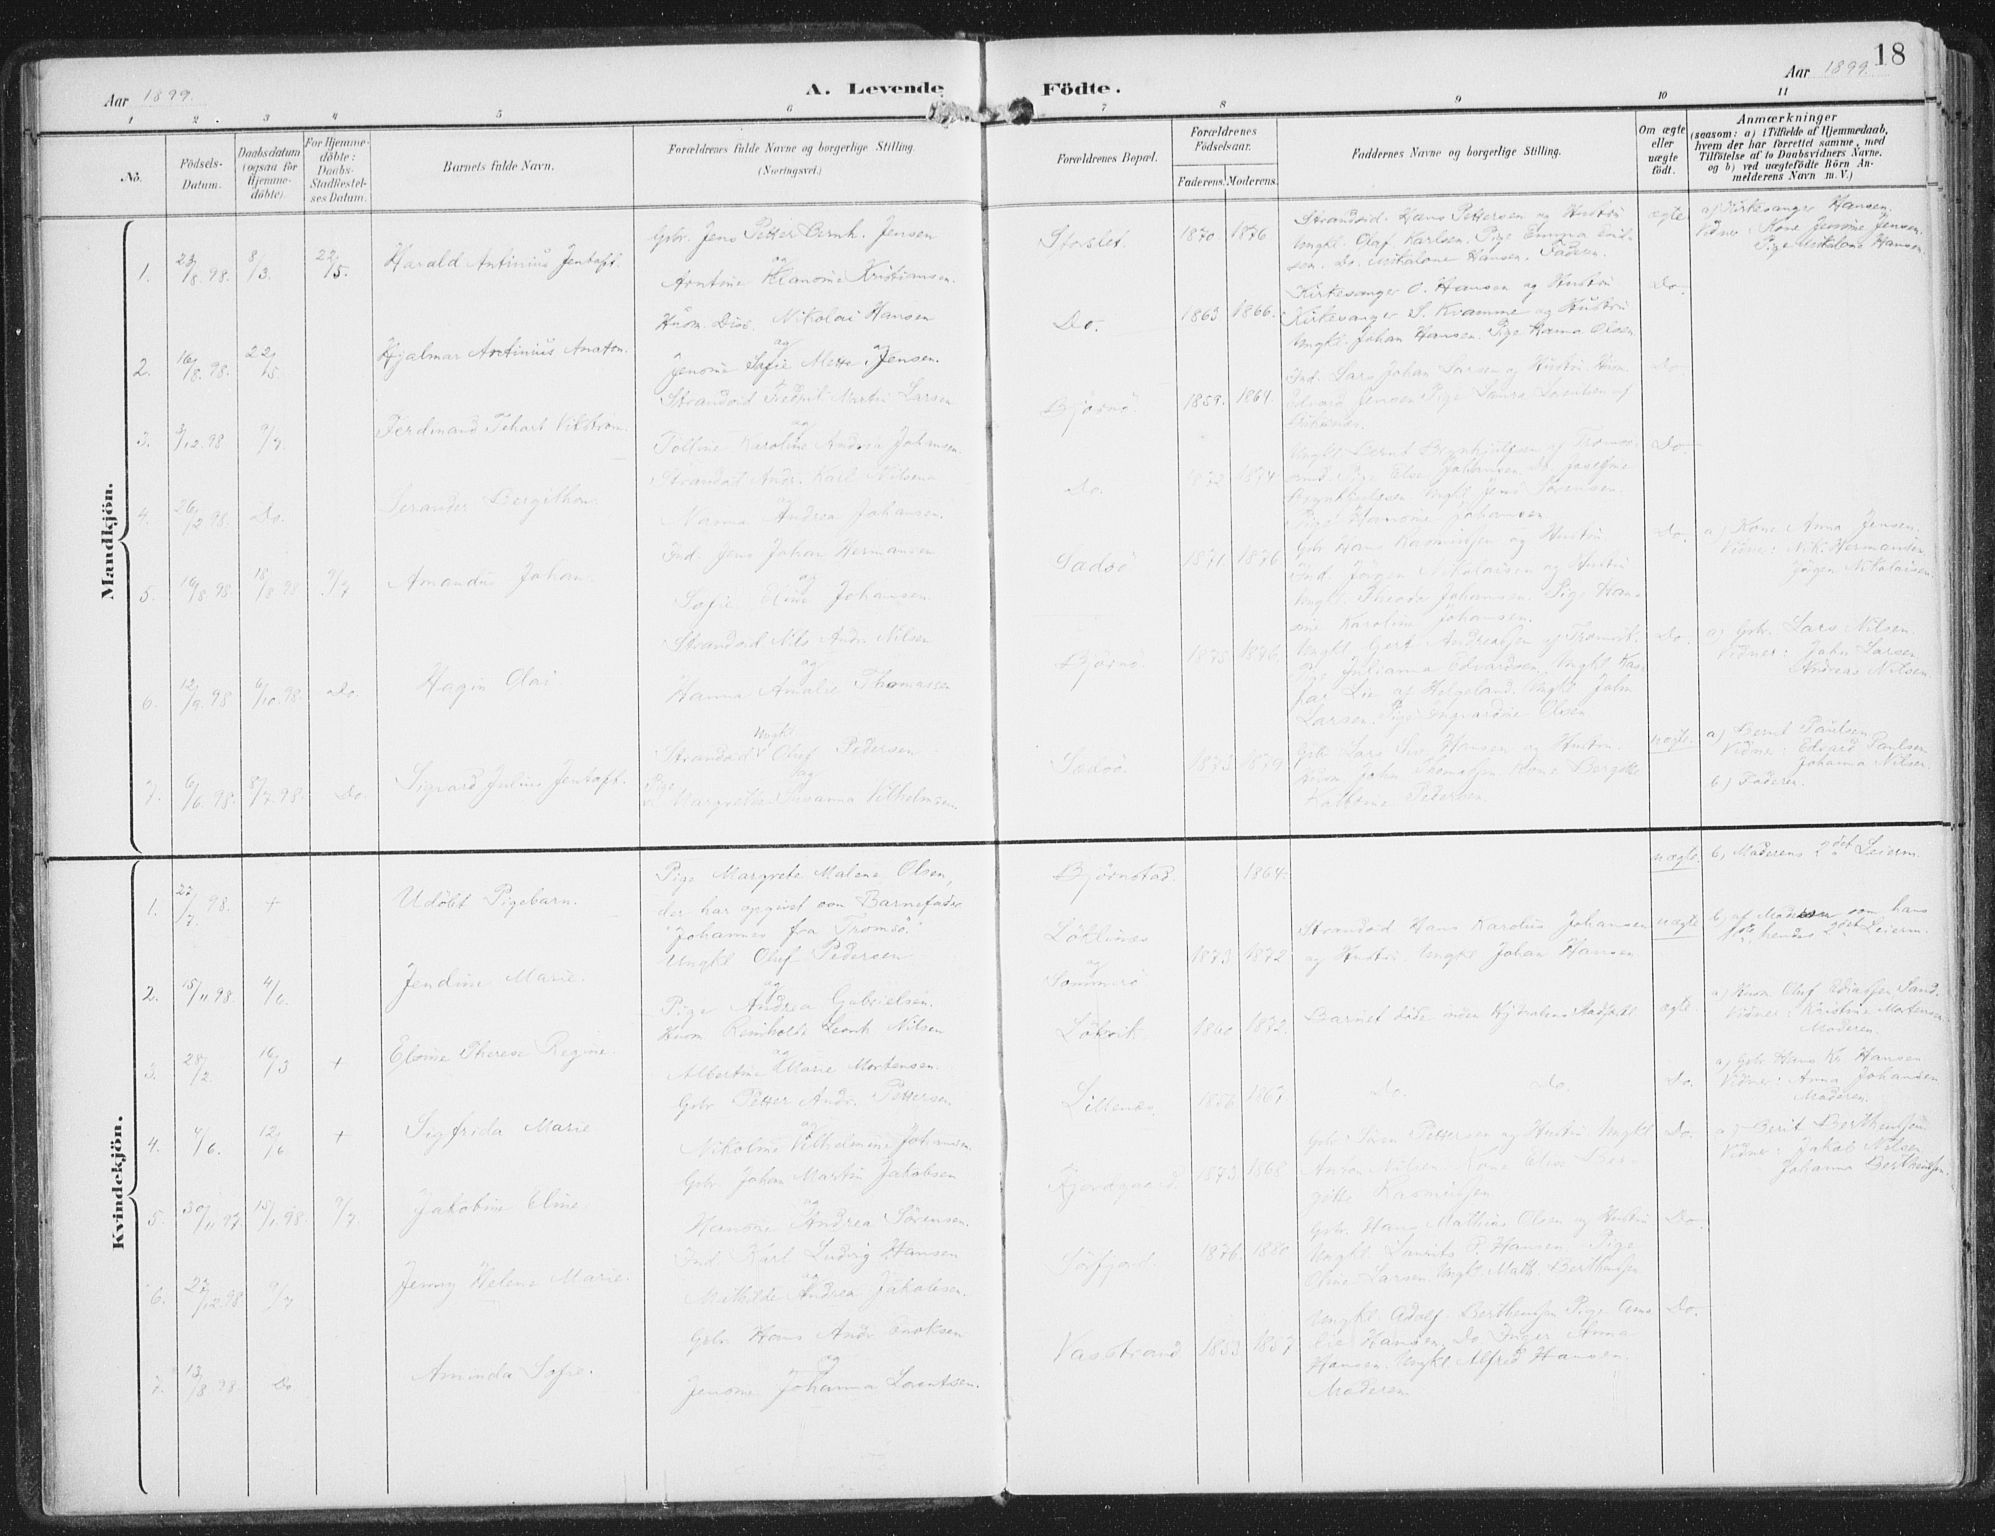 18
Aar 1899.
A. Levende Födte.
Aar 1899.
1 2 3 4 5 6 7 8 9 10 11
No.
Födsels-
Datum.
Daabsdatum
(ogsaa for
Hjemme-
döbte).
For Hjemme-
döbte:
Daabs-
Stadfæstel-
ses Datum.
Barnets fulde Navn.
Forældrenes fulde Navne og borgerlige Stilling.
(Næringsvei.)
Forældrenes Bopæl.
Forældrenes
Födselsaar.
Faderens. Moderens.
Faddernes Navne og borgerlige Stilling.
Om ægte
eller
uægte
født.
Anmærkninger
(saasom: a) i Tilfælde af Hjemmedaab,
hvem der har forrettet samme, med
Tilföielse af to Daabsvidners Navne.
og b) ved uægtefödte Börn An-
melderens Navn m. V.)
Mandkjön.
1. 23/8.98. 8/3. 22/5. Harald Antinius Jentoft.
Gbr. Jens Petter Bernh. Jensen
og
Arntine Klanoine Kristiansen.
Storslet. 1870. 1876
Strandsid. Hans Pettersen og Hustru
Ungkl. Olaf Karlsen. Pige Emma
sen. Do. Mikalone Hansen. Faderen.
ægte
a) Kirkesanger Hansen.
Vidner: Kone Jensine Jensen.
Pige Mikalone Hansen.
2. 16/8.98. 22/5. Hjalmar Antinius Anaton.
Husm. Nikolai Hansen
og
Jenoine Sofie Mette Jensen.
Do. 1863 1866.
Kirkesanger O. Hansen og Hustru
Kirkesanger S. Kvamme og Hustru
Ungkl. Johan Hansen. Pige Olsen
Do.
3. 3/12.98 9/7. Ferdinand Vikstrøm.
Strandsid Fredrik Martin Larsen
og
Karoline Andrea Johansen.
Bjørnø. 1859. 1864.
Ind. Lars Johan Larsen og Hustru. Husm.
Edvard Jensen. Pige Laura
Do.
4. 26/12 98. Do. Serander Bergithon.
Strandsid Andr. Karl Nilsen
og
Nanna Andrea Johansen.
Do. 1872 1874.
Ungkl. Bernt Brynhjulfsen af Tromsø-
sund. Pige Else Johansen. Do. Josefine
Brynhjulfsen. Ungkl. Jens Sørensen.
Pige Hanoine Johansen
Do.
5. 16/8.98 18/8.98 9/7 Amandus Johan.
Ind. Jens Johan Hermansen
og
Sofie Johansen.
Sadsø. 1871. 1876
Gbr. Hans Rasmussen og Hustru
Ind. Jørgen Nikolaisen og Hustru
Ungkl. Theodor Johansen. Pige
Karoline Johansen.
Do.
a) Kone Anna Jensen.
Vidner: Nik. Hermansen
Jørgen Nikolaisen.
6. 12/9.98 6/10.98. Do. Hagin Olai.
Strandsid Nils Andr. Nilsen
og
Hanna Amalie Thomassen
Bjørnø. 1875 1876.
Ungkl. Gert Andreassen af Tromvik.
Julianna Edvardsen. Ungkl. Kas-
Lie af Helgeland. Ungkl. John
Larsen. Pige Ingvardine Olsen
Do.
a) Gbr. Lars Nilsen.
Vidner: John Larsen
Andreas Nilsen.
7. 6/6.98. 8/7.98. Do. Sigvard Julius Jentoft.
Ungkl
Strandsid Oluf Pedersen
og
Pige Margrethe Susanna Vilhelmsen.
Sadsø. 1873 1879.
Gbr. Lars Hansen og Hustru.
Husm. John Thomassen. Kone
Kathrine Pedersen.
uægte.
a) Bernt Paulsen
Vidner: Edvard Paulsen
Johanna Nilsen.
b) Faderen.
Kvindekjön.
1. 22/7.98. + Udöbt Pigebarn.
Pige Margrete Malene Olsen,
der har opgivet som Barnefader
"Johannes fra Tromsø."
Bjørnstad. 1864.
uægte.
b) Moderens 2det Leierm.
2. 15/11.98. 4/6. Jendine Marie.
Ungkl. Oluf Pedersen
og
Pige Andrea Gabrielsen.
Løklines
og
Sommerø
1873 1872
Strandsid Hans Karolus Johansen
og Hustru. Ungkl. Johan Hansen.
uægte
b) af Moderen som hans
1ste hendes 2det Leierm.
3. 28/2. 16/3 + Eloine Therese Regine.
Husm. Reinholdt Leonh Nilsen
og
Albertine Marie Mortensen.
Løkvik 1860 1872.
Barnet døde inden Kirkelig Stadfæst
ægte.
a) Husm. Oluf Ediassen Sand.
Vidner: Kristine Mortensen
Moderen.
4. 4/6. 12/6 + Sigfrida Marie
Gbr Petter Andr. Pettersen
og
Nikoline Vilhelmine Johansen.
Lillenes. 1856 1867
Do. Do.
Do.
a) Gbr. Hans Kr. Hansen
Vidner: Anna Johansen
Moderen.
5. 30/11.97. 15/1.98. 9/7. Jakobine Eline.
Gbr. Johan Martin Jakobsen
og
Hanoine Andrea Sørensen.
Fjordgaard 1873 1868
Gbr. Søren Pettersen og Hustru. Ungkl
Anton Nilsen. Kone Elise Ber-
gitte Rasmussen
Do.
a) Berit Berthensen
Vidner: Jakob Nilsen
Johanna Berthensen.
6. 27/12.98 9/7 Jenny Helene Marie.
Ind. Karl Ludvig Hansen
og
Mathilde Andrea Jakobsen.
Sørfjord. 1876. 1880.
Gbr. Hans Mathias Olsen og Hustru
Ungkl. Laurits P. Hansen. Pige
Oline Larsen. Ungkl. Math. Berthensen
Do.
7. 13/8.98. Do Aminda Sofie.
Gbr. Hans Andr. Enoksen
og
Jenoine Johanna Lorentsen.
Vasstrand 1853 1857
Ungkl. Adolf Berthensen. Pige Ama-
lie Hansen. Do. Inger Anna
Hansen. Ungkl. Alfred Hansen.
Moderen
Do.